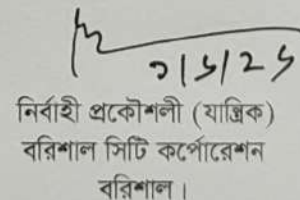 নির্বাহী প্রকৌশলী (যান্ত্রিক)
বরিশাল সিটি কর্পোরেশন
বরিশাল।